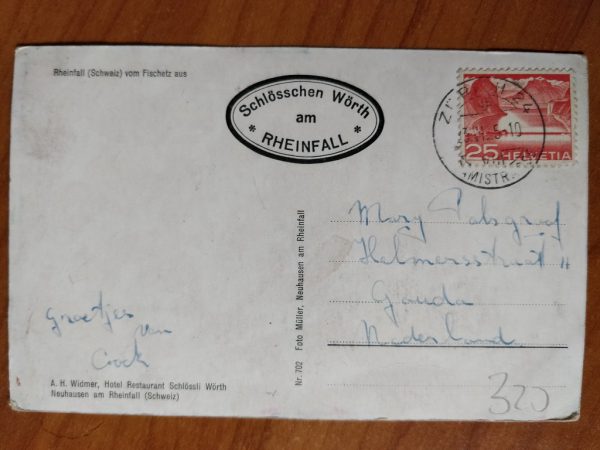 Rheinfall (Schweiz) vom Fischetz aus
Schlösschen Wörth
am
* RHEINFALL *
25 HELVETIA
Mary
Helmersstraat
Gouda
Nederland
Groetjes
van
Cock
Nr. 702 Foto Müller, Neuhausen am Rheinfall
A. H. Widmer, Hotel Restaurant Schlössli Wörth
Neuhausen am Rheinfall (Schweiz)
320